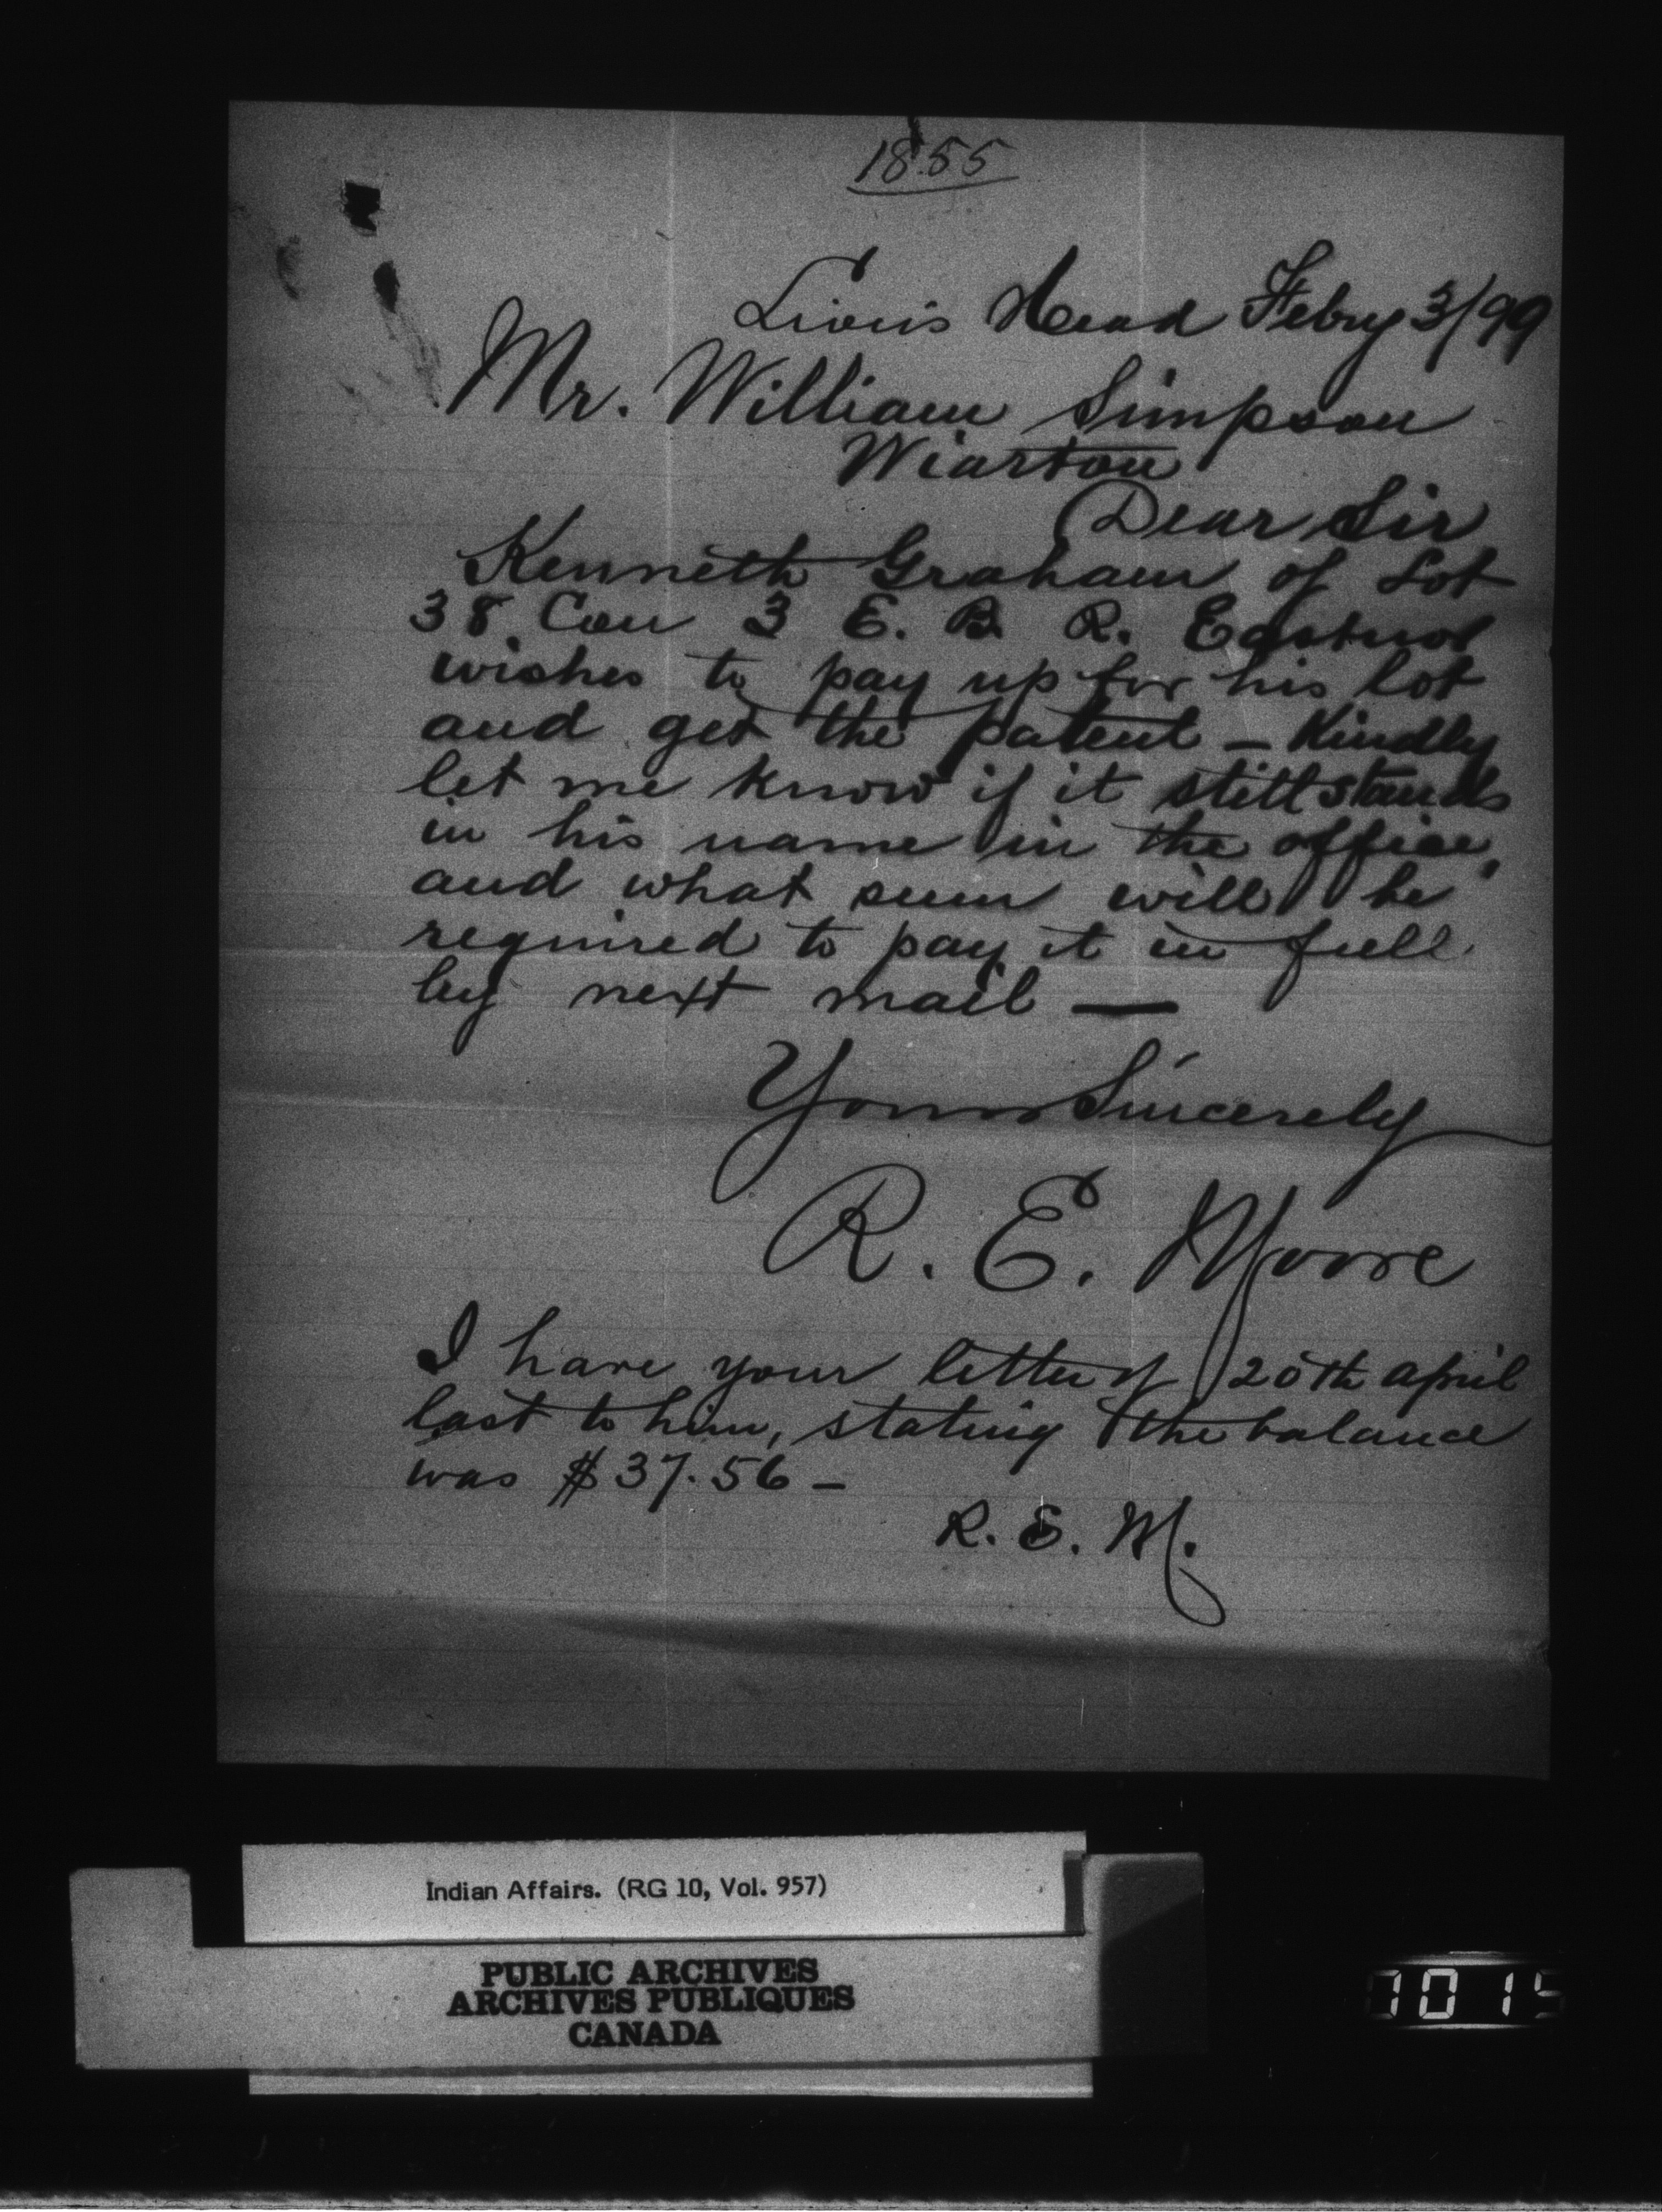 1855
Lion's Head Febry 3/99
Mr. William Simpson
Wiarton
Dear Sir
Kenneth Graham of Lot
38. Con 3 E. B. R. Eastnor
wishes to pay up for his lot
and get the patent — Kindly
let me know if it still stands
in his name in the office,
and what sum will be
required to pay it in full
by next mail —
Yours Sincerely
R. E. Moore
I have your letter of 20th april
last to him, stating the balance
was $37.56 —
R. E. M.
Indian Affairs. (RG 10, Vol. 957)
PUBLIC ARCHIVES
ARCHIVES PUBLIQUES
CANADA
1015